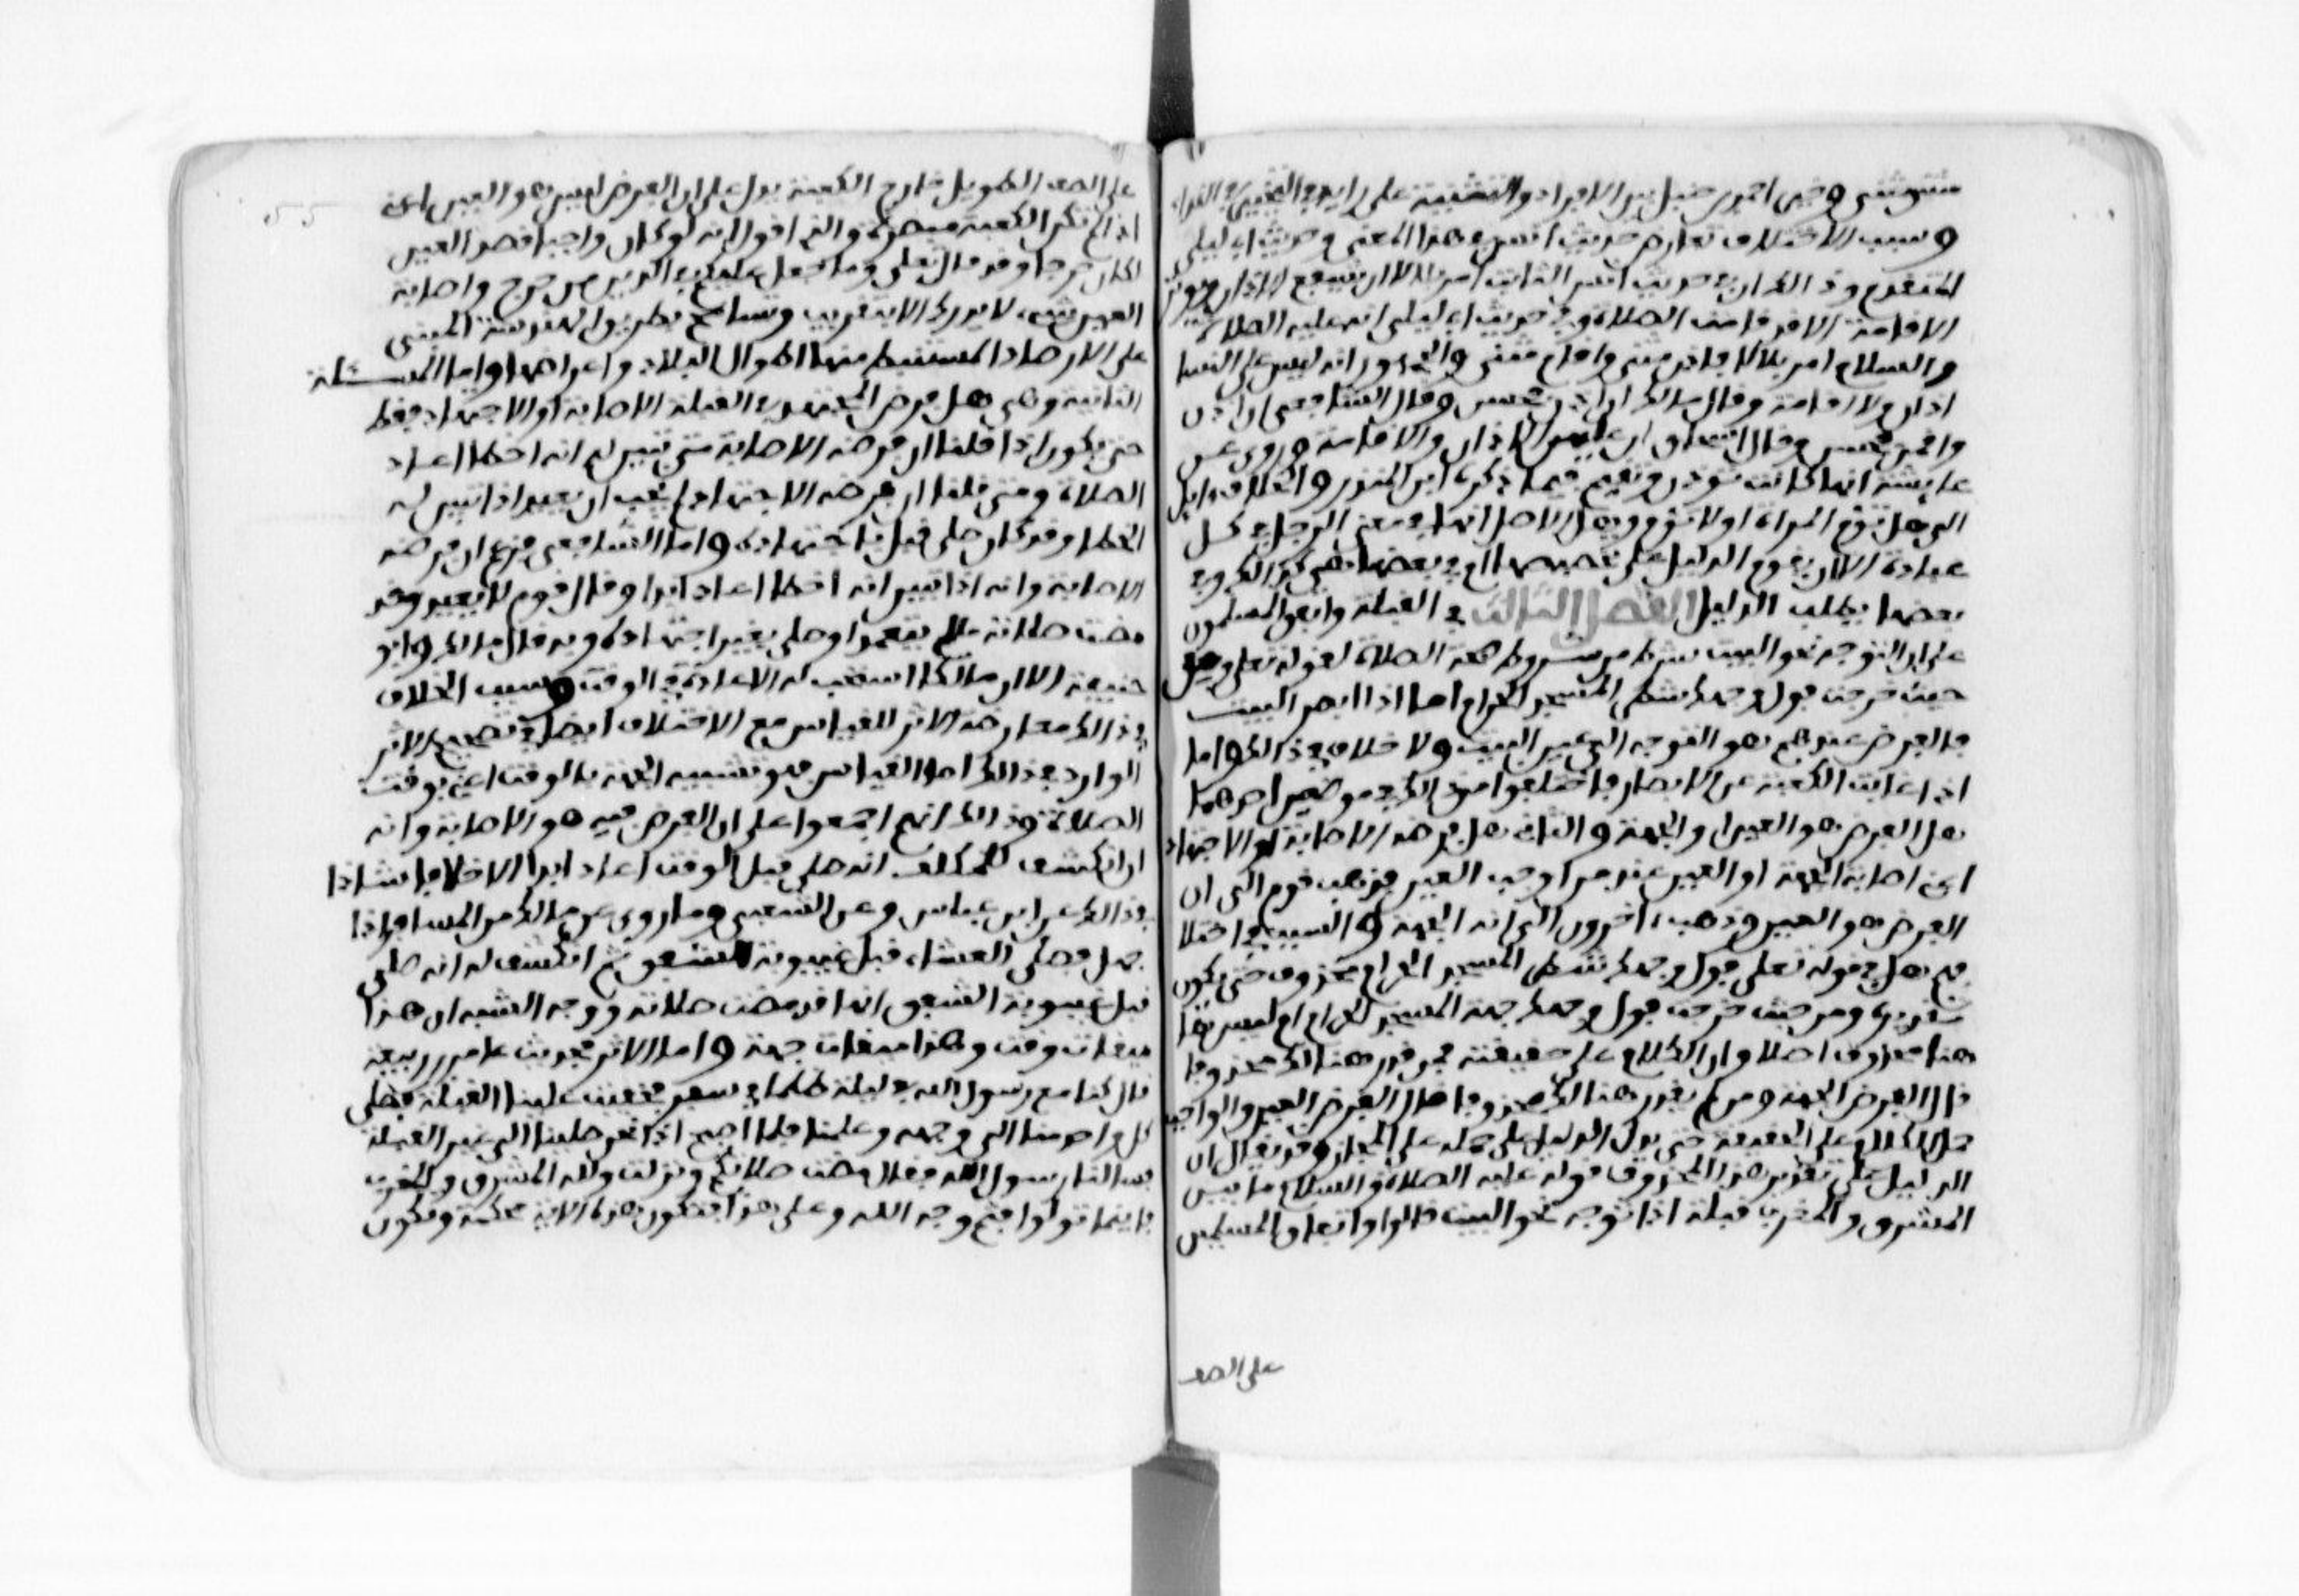 مثنى مثنى وخير احمد بن حنبل بين الافراد والتثنية على رايه في التخيير في النداء
وسبب الاختلاف تعارض حديث انس في هذا المعنى وحديث ابي ليلى
المتقدم وذالك ان في حديث انس الثابت امر بلالا ان يشفع الاذان ويوتر
الاقامة الا قد قامت الصلاة وفي حديث ابي ليلى انه عليه الصلاة
والسلام امر بلالا فاذن مثنى واقام مثنى والجمهور انه ليس على النسا
اذان ولا اقامة وقال مالك ان اقمن فحسن وقال الشافعي ان اذن
واقمن فحسن وقال اسحاق ان عليهن الاذان والاقامة وروي عن
عايشة انها كانت توذن وتقيم فيما ذكره ابن المنذر والخلاف وايل
الى هل تؤم المراة اولا تؤم وهل الاصل انها في معنى الرجل في كل
عبادة الا ان يقوم الدليل على تخصيصها ام في بعضها هي كذالك وفي
بعضها يطلب الدليل الفصل الثالث في القبلة واتفق المسلمون
على ان التوجه نحو البيت شرط من شروط صحة الصلاة لقوله تعلى ومن
حيث خرجت فول وجهك شطر المسجد الحرام اما اذا ابصر البيت
فالفرض عندهم هو التوجه الى عين البيت ولا خلاف في ذالك واما
اذا غابت الكعبة عن الابصار فاختلفوا من ذالك في موضعين احدهما
هل الفرض هو العين او الجهة والثاني هل فرضه الاصابة او الاجتهاد
اعني اصابة الجهة او العين عند من اوجب العين فذهب قوم الى ان
الفرض هو العين وذهب اخرون الى انه الجهة والسبب في اختلا
فهم هل في قوله تعلى فول وجهك شطر المسجد الحرام محذوف حتى يكون
تقديره ومن حيث خرجت فول وجهك جهة المسجد الحرام ام ليس ها
هنا محذوف اصلا وان الكلام على حقيقته فمن قدر هنالك محذوفا
قال الفرض الجهة ومن لم يقدر هنالك محذوفا قال الفرض العين والواجب
حمل الكلام على الحقيقة حتى يدل الدليل على حمله على المجاز وقد يقال ان
الدليل على تقدير هذا المحذوف قوله عليه الصلاة والسلام ما بين
المشرق والمغرب قبلة اذا توجه نحو البيت قالوا واتفاق المسلمين
على الصف
55
على الصف الطويل خارج الكعبة يدل على ان الفرض ليس هو العين اعني
اذا لم تكن الكعبة مبصرة والذي اقوله انه لو كان واجبا قصد العين
لكان حرجا وقد قال تعلى وما جعل عليكم في الدين من حرج واصابة
العين شيء لا يدرك الا بتقريب وتسامح بطريق الهندسة المبني
على الارصاد المستنبط منها اطوال البلاد واعراضها واما المسئلة
الثانية وهي هل فرض المجتهد في القبلة الاصابة او الاجتهاد فقط
حتى يكون اذا قلنا ان فرضه الاصابة متى تبين له انه اخطا اعاد
الصلاة ومتى قلنا ان فرضه الاجتهاد لم يجب ان يعيد اذا تبين له
الخطا وقد كان صلى قبل باجتهاده واما الشافعي فزعم ان فرضه
الاصابة وانه اذا تبين انه اخطا اعاد ابدا وقال قوم لا يعيد وقد
مضت صلاته ما لم يتعمد او صلى بغير اجتهاد وبه قال مالك وابو
حنيفة الا ان مالكا استحب له الاعادة في الوقت وسبب الخلاف
في ذالك معارضة الاثر للقياس مع الاختلاف ايضا في تصحيح الاثر
الوارد في ذالك اما القياس فهو تشبيه الجهة بالوقت اعني بوقت
الصلاة وذالك انهم اجمعوا على ان الفرض فيه هو الاصابة وانه
ان انكشف للمكلف انه صلى قبل الوقت اعاد ابدا الا خلافا شاذا
في ذالك عن ابن عباس وعن الشعبي وما روي عن مالك من المسافر اذا
جهل فصلى العشاء قبل غيبوبة الشفق ثم انكشف له انه صلى
قبل غيبوبة الشفق انها قد مضت صلاته ووجه الشبه ان هذا
ميقات وقت وهذا ميقات جهة واما الاثر فحديث عامر بن ربيعة
قال كنا مع رسول الله في ليلة ظلماء في سفر فخفيت علينا القبلة فصلى
كل واحد منا الى وجهه وعلمنا فلما اصبحنا اذا نحن صلينا الى غير القبلة
فسالنا رسول الله فقال مضت صلاتكم ونزلت ولله المشرق والمغرب
فاينما تولوا فثم وجه الله وعلى هذا فتكون هذه الاية محكمة وتكون